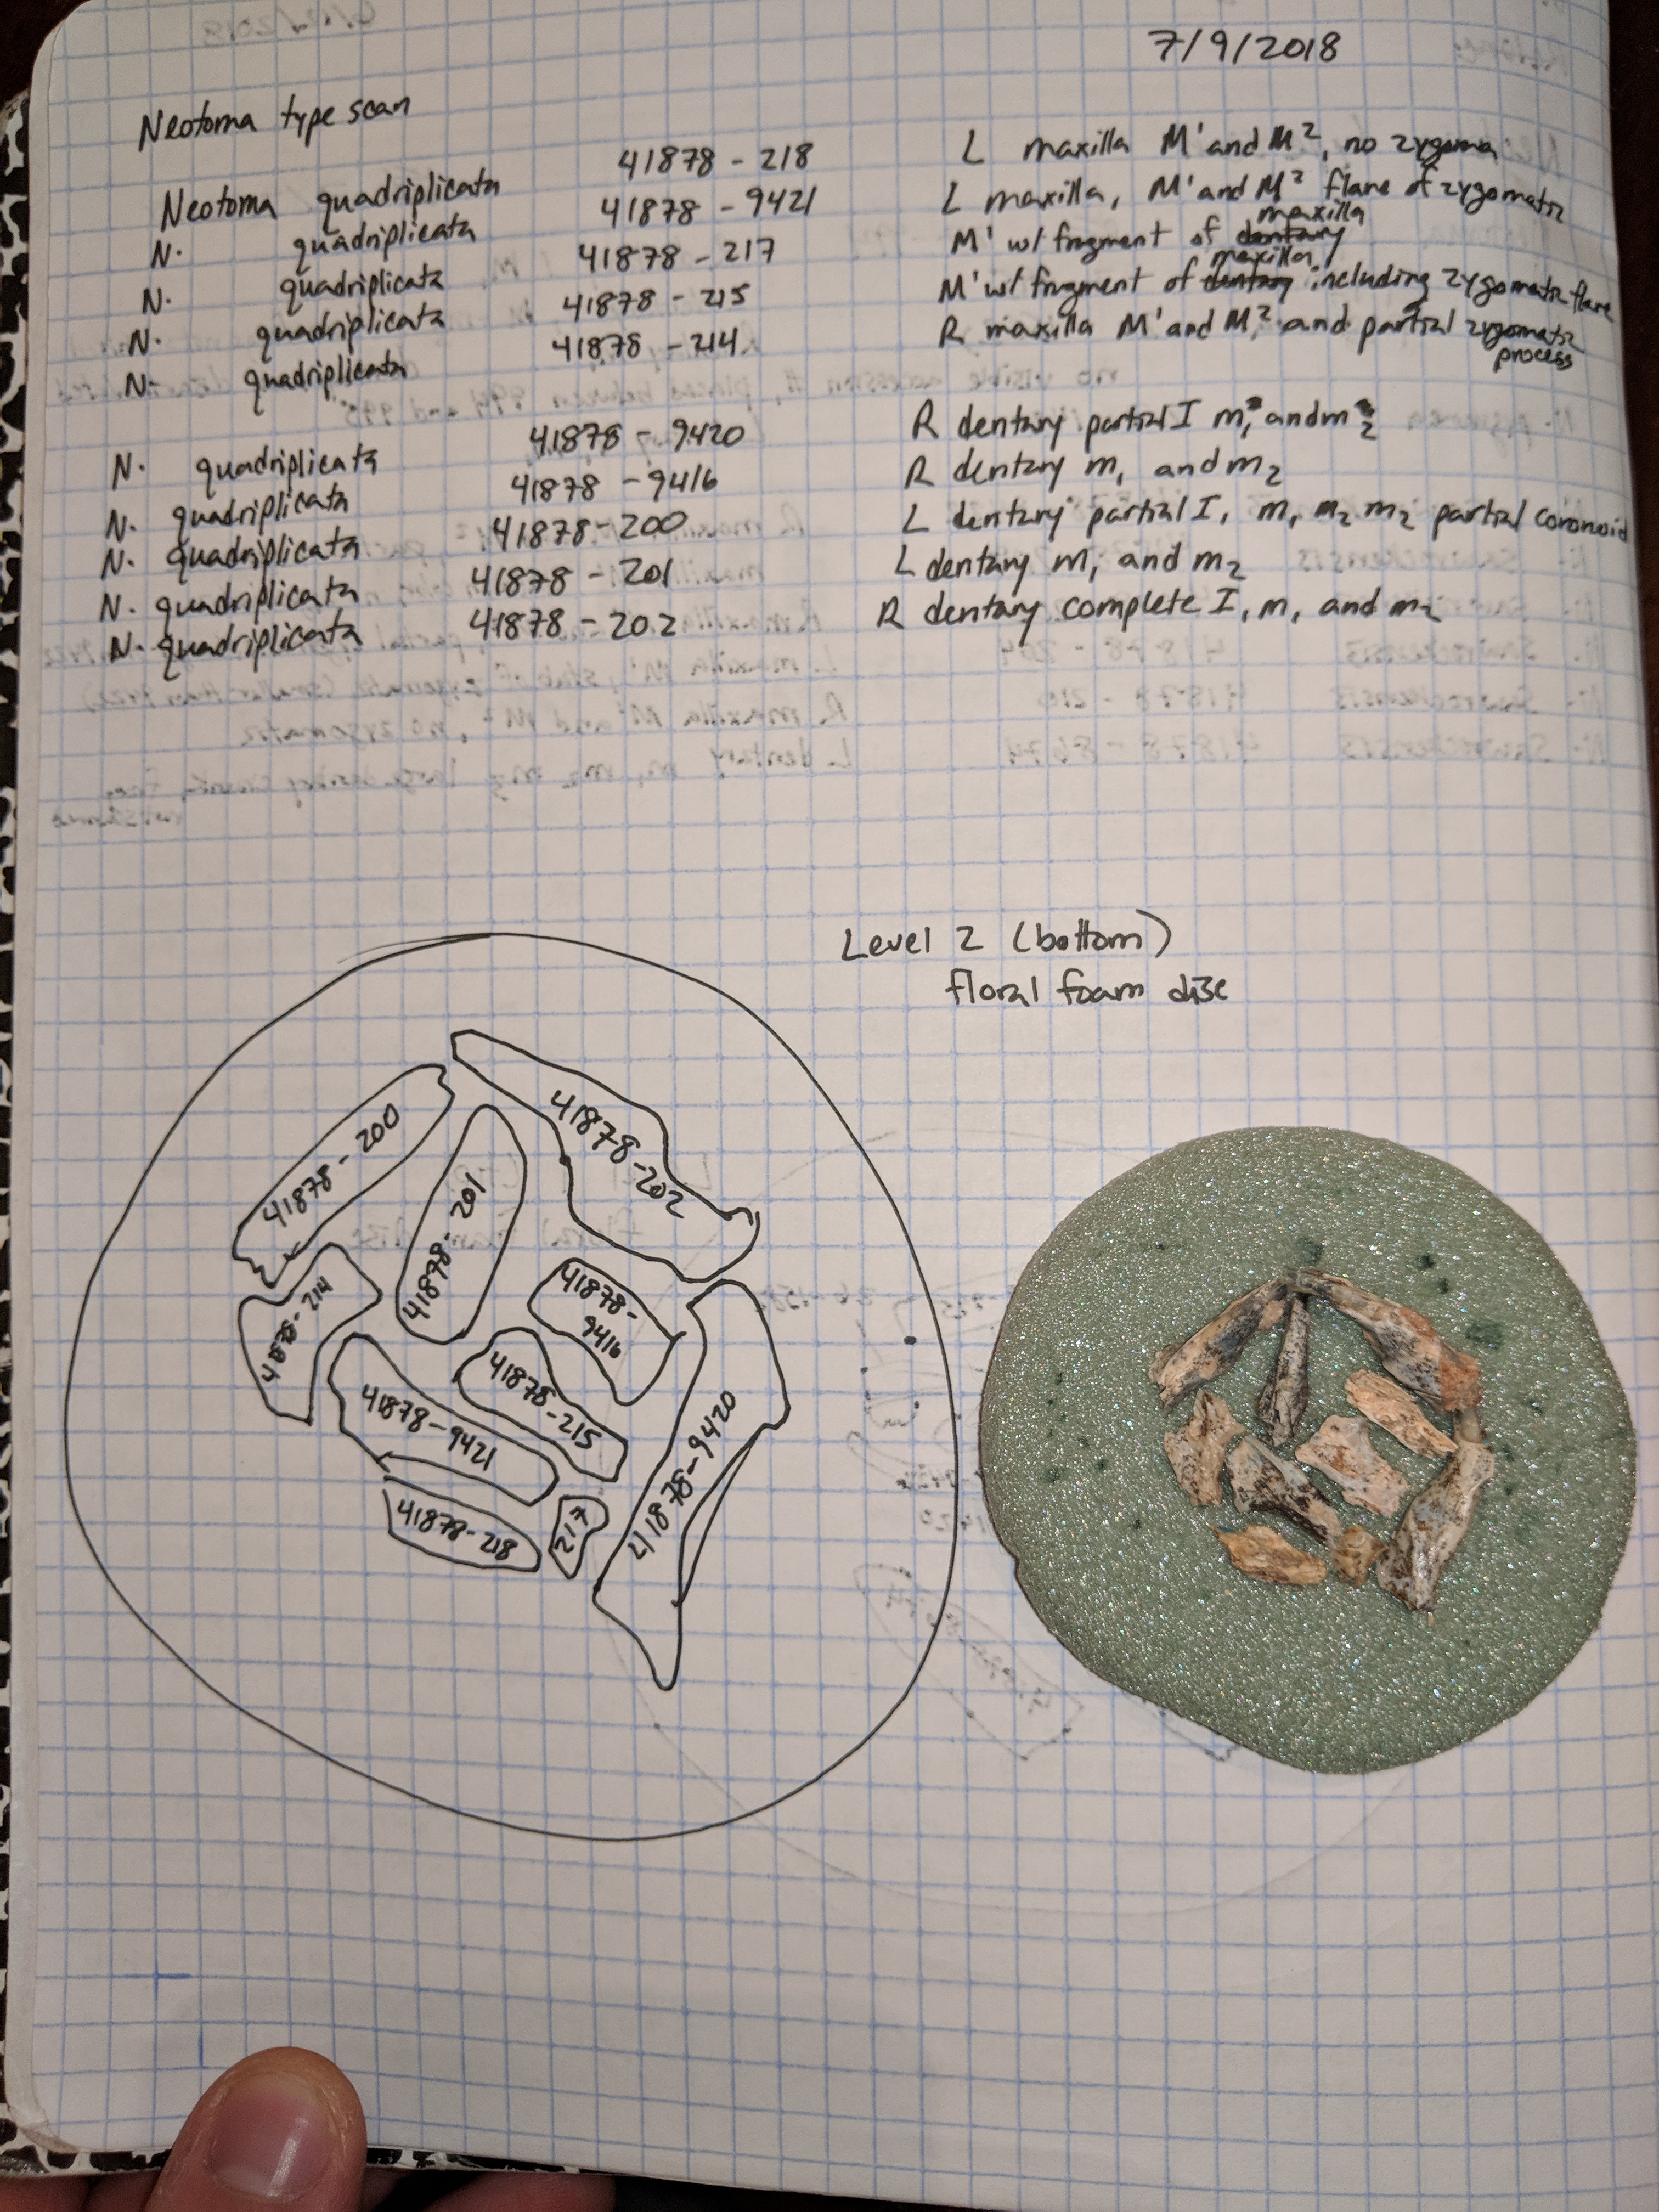 7/9/2018
Neotoma type scan
Neotoma quadriplicata 41878 - 218 L maxilla M¹ and M², no zygoma
N. quadriplicata 41878 - 9421 L maxilla, M¹ and M² flare of zygomatic
maxilla
N. quadriplicata 41878 - 217 M¹ w/ fragment of dentary
maxilla
N. quadriplicata 41878 - 215 M¹ w/ fragment of dentary including zygomatic flare
N. quadriplicata 41878 - 214 R maxilla M¹ and M² and partial zygomatic
process
N. quadriplicata 41878 - 9420 R dentary partial I m₁ and m₂
N. quadriplicata 41878 - 9416 R dentary m₁ and m₂
N. quadriplicata 41878 - 200 L dentary partial I, m₁ m₂ m₂ partial coronoid
N. quadriplicata 41878 - 201 L dentary m₁ and m₂
N. quadriplicata 41878 - 202 R dentary complete I, m₁ and m₂
Level 2 (bottom)
floral foam disc
41878 - 200
41878 - 201
41878 - 202
41878 - 214
41878 -
9416
41878 - 215
41878 - 9421
41878 - 9420
41878 - 218
217